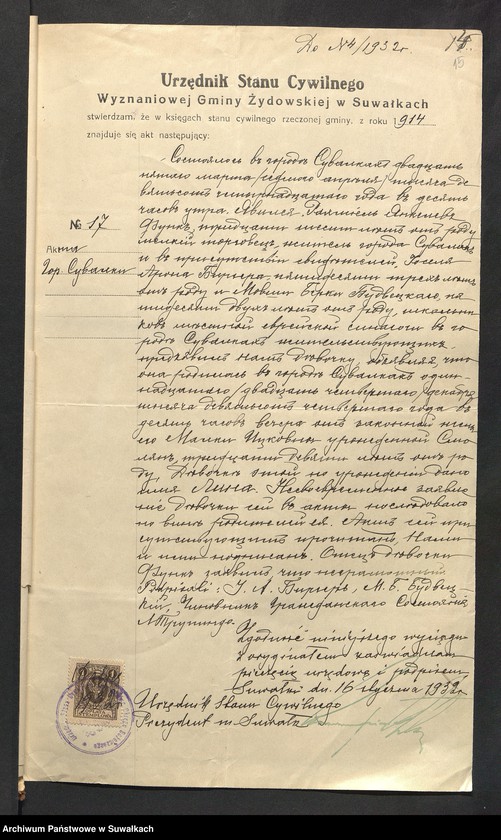 Do N4/1932 r.
15
Urzędnik Stanu Cywilnego
Wyznaniowej Gminy Żydowskiej w Suwałkach
stwierdzam, że w księgach stanu cywilnego rzeczonej gminy, z roku 1914
znajduje się akt następujący:
Состоялось въ городѣ Сувалкахъ двадцать
пятаго марта /седьмого апрѣля/ мѣсяца де
вятьсотъ четырнадцатаго года въ десять
часовъ утра. Явился Янкелевъ
№ 17
Функъ, тридцати шести лѣтъ отъ роду
мелкій торговецъ, житель города Сувалокъ
Гор. Сувалки
и въ присутствіи свидѣтелей Іоселя
Арона Бирпера пятидесяти трехъ лѣтъ
отъ роду и Мовши Бірки Будвецкаго, пя
тидесяти двухъ лѣтъ отъ роду, школьни
ковъ мѣстной еврейской синагоги въ го
родѣ Сувалкахъ жительствующихъ
предъявилъ намъ дѣвочку, объявляя, что
она родилась въ городѣ Сувалкахъ один
надцатаго /двадцать четвертаго/ декабря
мѣсяца девятьсотъ четвертаго года въ
десять часовъ вечера отъ законной жены
его Малки Ицковны урожденной Смо
лянъ, тридцати девяти лѣтъ отъ ро
ду. Дѣвочкѣ этой по урожденіи дано
имя Лина. Несвоевременное заявле
ніе дѣвочки сей въ акты послѣдовало
по винѣ родителей ея. Актъ сей при
сутствующимъ прочитанъ Нами
и ими подписанъ. Отецъ дѣвочки
Функъ заявилъ что неграмотный
І. А. Бирперъ, М. Б. Будвец-
кій, Чиновникъ Гражданскаго Состоянія
Zgodność niniejszego wyciągu
z oryginałem zaświadczam
pieczęcią urzędową i podpisem
Suwałki dn. 16 stycznia 1932 r.
Urzędnik Stanu Cywilnego
Prezydent m. Suwałk
Archiwum Państwowe w Suwałkach